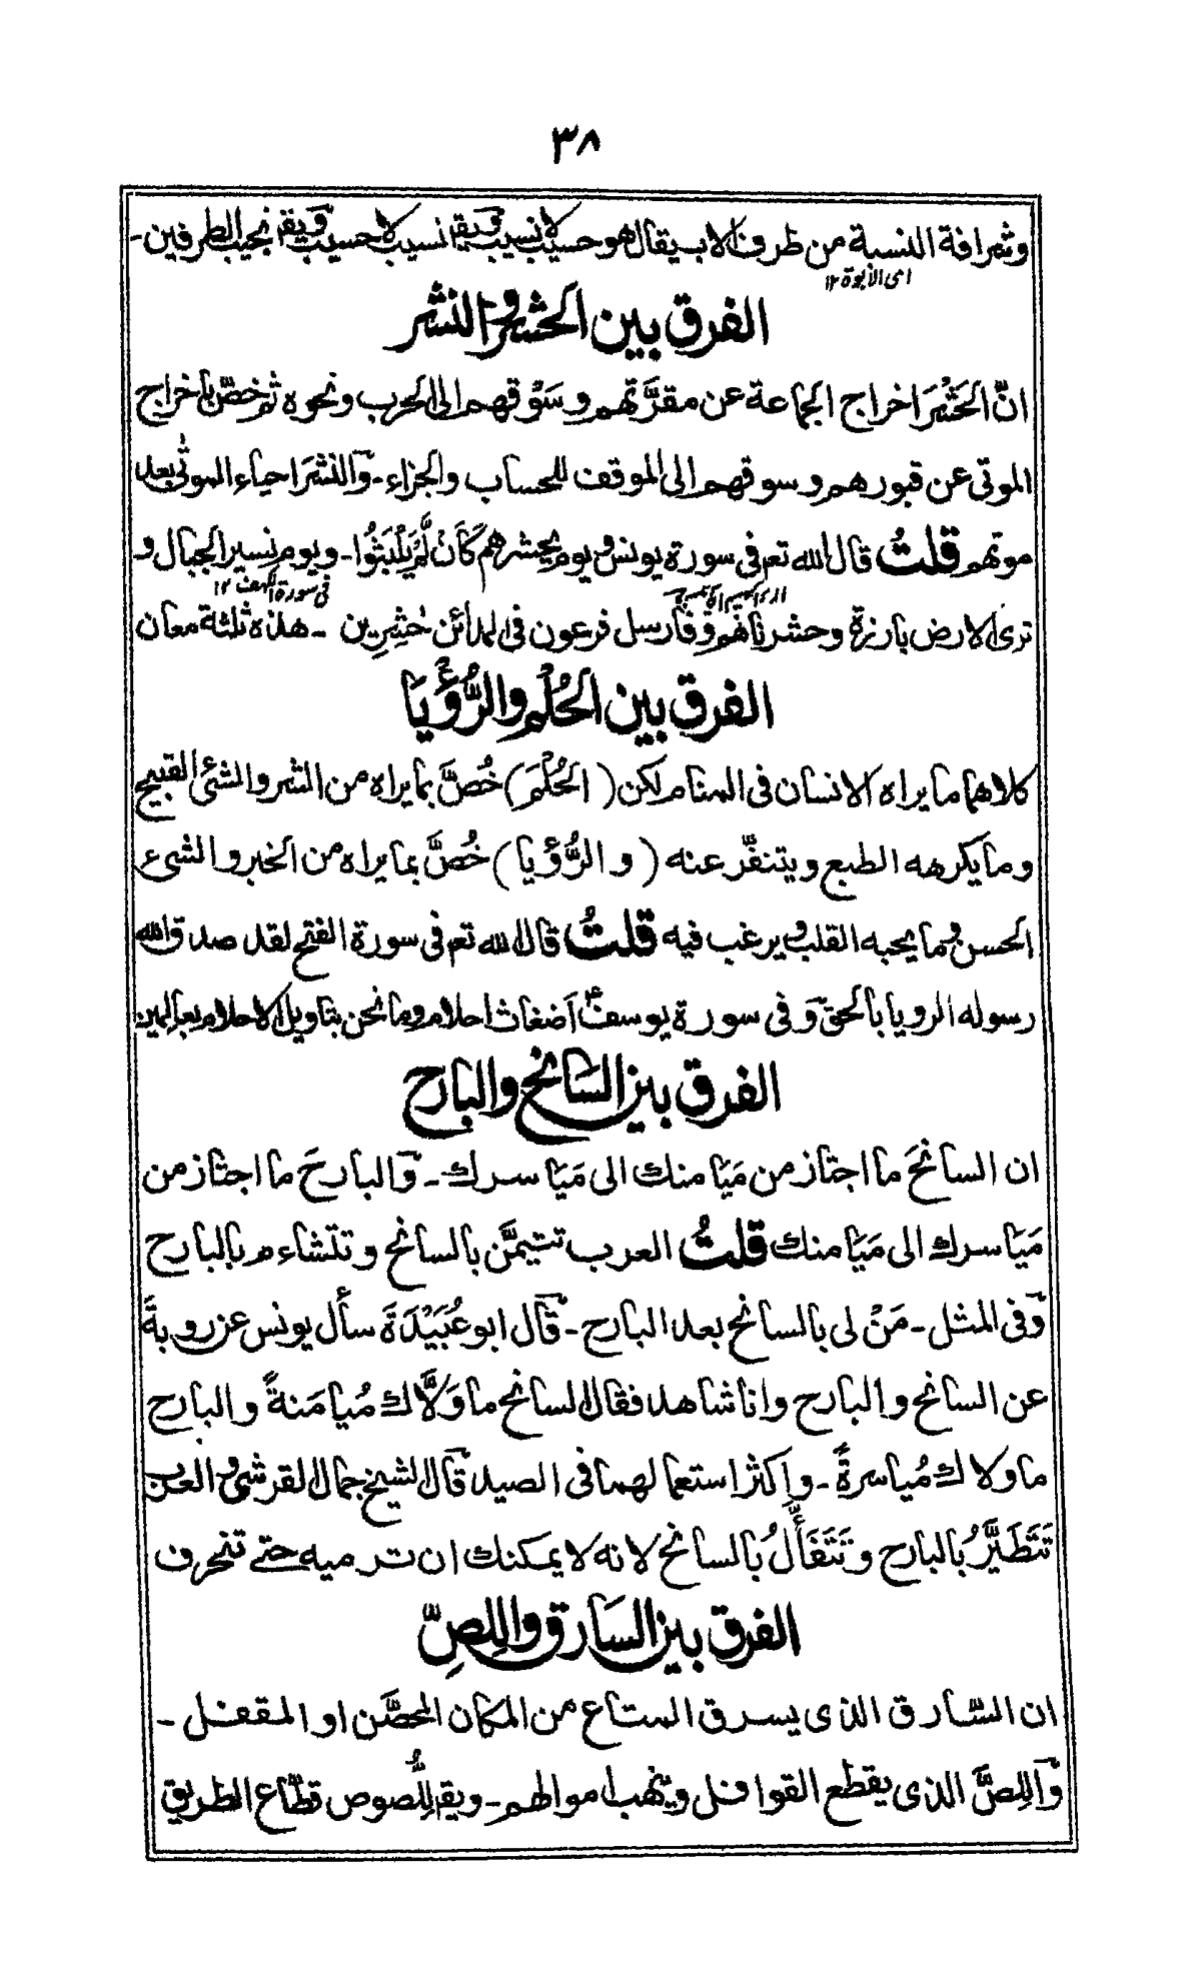 ٣٨
وشرافة النسبة من طرف الاب يقال هو حسيب لا نسيب ويقم نسيب لا حسيب ويقم نجيب الطرفين -
اى الابوة ١٢
الفرق بين الحشر والنشر
انّ الحَشْرَ اخراج الجماعة عن مقرّتهم وسَوْقهم الى الحرب ونحوه ثم خصّ باخراج
الموتى عن قبورهم وسوقهم الى الموقف للحساب والجزاء - وَالنشرَ احياء الموتٰى بعد
موتهم قلتُ قال الله تعم فى سورة يونس ويوم يحشرهم كَاَنْ لَّمْ يَلْبَثُوا - ويوم نسير الجبال و
فى سورة الكهف ١٢
ترى الارض بارزة وحشرناهم وَفارسل فرعون فى المدائن حٰشِرِين - هذه ثلثة معان
الفرق بين الحُلْم والرُّؤْيَا
كلاهما ما يراه الانسان فى المنام لكن (الحُلْمَ) خُصَّ بما يراه من الشر والشئ القبيح
وما يكرهه الطبع ويتنفّر عنه (و الرُّؤْيا) خُصَّ بما يراه من الخير والشىء
الحسن وما يحبه القلب ويرغب فيه قلتُ قال الله تعم فى سورة الفتح لقد صدق الله
رسوله الرويا بالحق وَفى سورة يوسفؑ اَضغاث احلام وما نحن بتاويل الاحلام بعالمين
الفرق بين السَانح والبارح
ان السانحَ ما اجتاز من مَيَامنك الى مَيَاسرك - وَالبارحَ ما اجتاز من
مَيَاسرك الى مَيَامنك قلتُ العرب تتيمَّن بالسانح وتتشاءم بالبارح
وَفى المثل - مَنْ لى بالسانح بعد البارح - قَال ابو عُبَيْدَةَ سأل يونس عن روبةَ
عن السانح والبارح وانا شاهد فقال السانح ما وَلَّاك مُيامَنةً والبارح
ما ولاك مُياسرةً - واكثر استعمالهما فى الصيد قَال الشيخ جمال القرشى والعرب
تَتَطَيَّرُ بالبارح وتَتَفَأَّلُ بالسانح لانه لا يمكنك ان ترميه حتے تنحرف
الفرق بين السَارق واللِصِّ
ان السّارق الذى يسرق المتاع من المكان المحصَّن او المقفل -
وَاللِصَّ الذى يقطع القوافل وينهب اموالهم - ويقم للُّصوص قطّاع الطريق